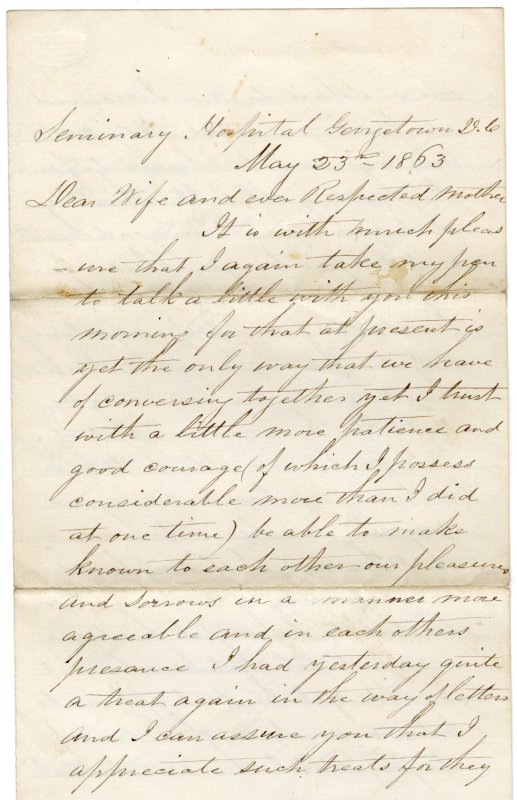 Seminary Hospital Georgetown D.C
May 23rd 1863
Dear Wife and ever Respected Mother
It is with much pleas
-ure that I again take my pen
to talk a little with you this
morning for that at present is
yet the only way that we have
of conversing together yet I trust
with a little more patience and
good courage (of which I possess
considerable more than I did
at one time) be able to make
known to each other our pleasures
and sorrows in a manner more
agreeable and in each others
presance I had yesterday quite
a treat again in the way of letters
and I can assure you that I
appreciate such treats for they